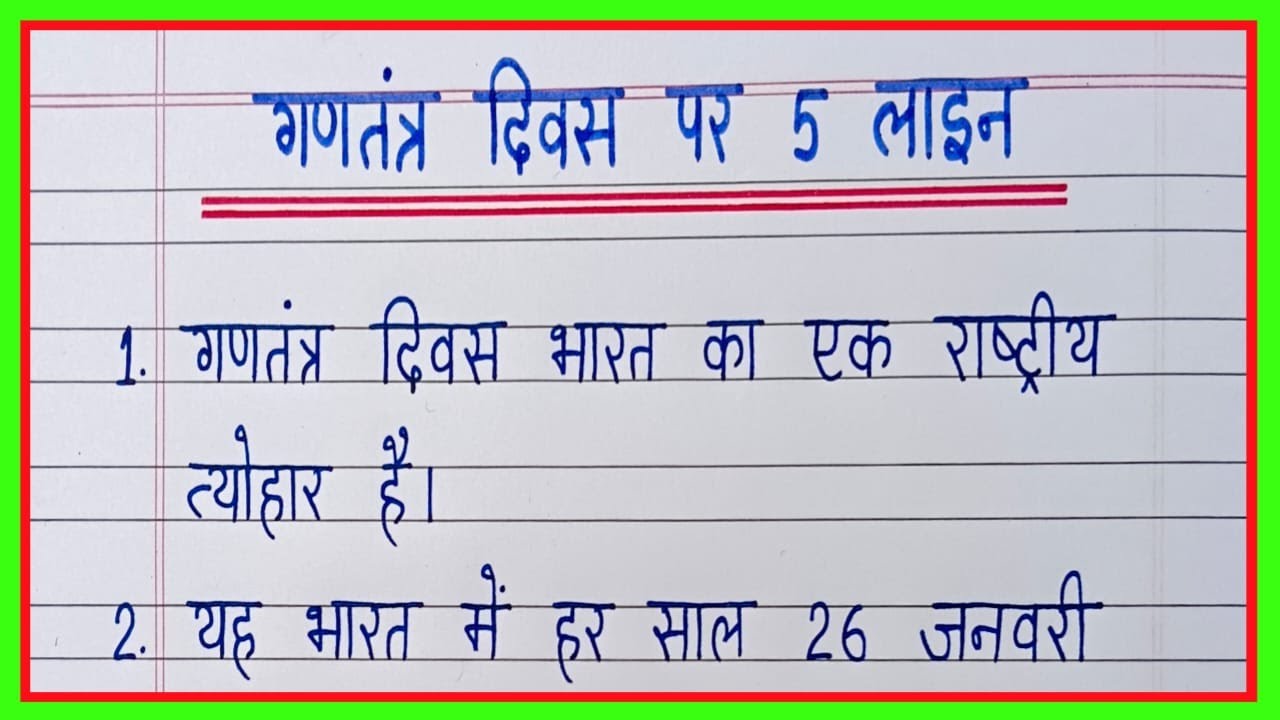 गणतंत्र दिवस पर 5 लाइन
1. गणतंत्र दिवस भारत का एक राष्ट्रीय
त्योहार है।
2. यह भारत में हर साल 26 जनवरी